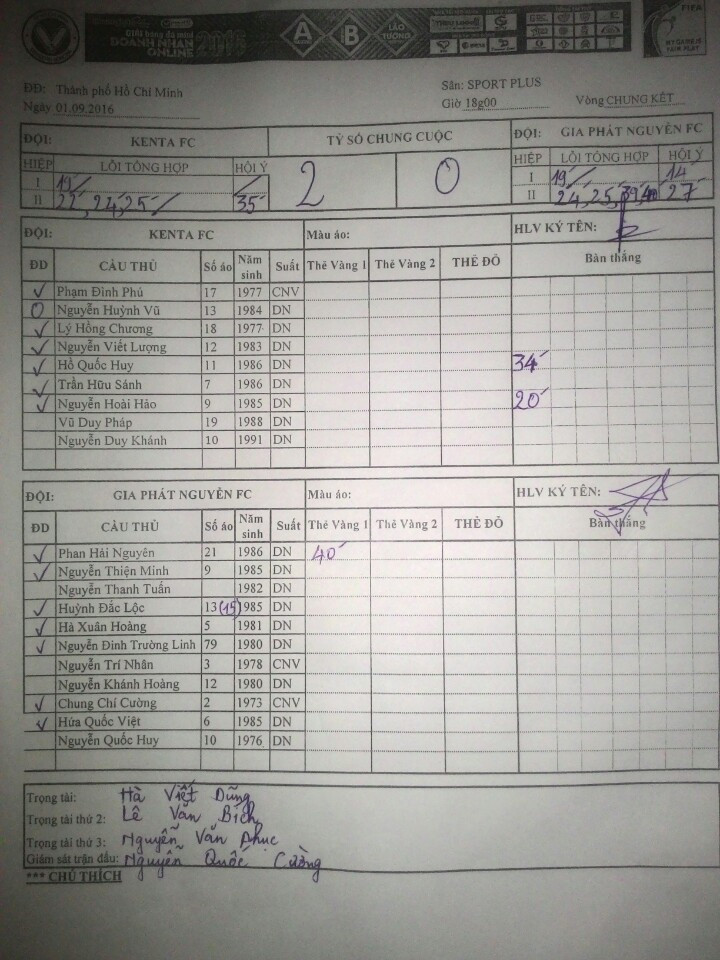 Giải bóng đá mini
DOANH NHÂN 2016
ONLINE
A B LÁO TƯỚNG
FIFA
MY GAME IS FAIR PLAY
ĐĐ: Thành phố Hồ Chí Minh Sân: SPORT PLUS
Ngày 01.09.2016 Giờ 18g00 Vòng CHUNG KẾT
ĐỘI: KENTA FC TỶ SỐ CHUNG CUỘC ĐỘI: GIA PHÁT NGUYÊN FC
HIỆP LỖI TỔNG HỢP HỘI Ý 2 0 HIỆP LỖI TỔNG HỢP HỘI Ý
I 19' I 19' 14'
II 22', 24', 25' 35' II 24', 25', 39', 40 27'
ĐỘI: KENTA FC Màu áo: HLV KÝ TÊN:
ĐD CẦU THỦ Số áo Năm sinh Suất Thẻ Vàng 1 Thẻ Vàng 2 THẺ ĐỎ Bàn thắng
Phạm Đình Phú 17 1977 CNV
Nguyễn Huỳnh Vũ 13 1984 DN
Lý Hồng Chương 18 1977 DN
Nguyễn Viết Lượng 12 1983 DN
Hồ Quốc Huy 11 1986 DN 34'
Trần Hữu Sánh 7 1986 DN
Nguyễn Hoài Hảo 9 1985 DN 20'
Vũ Duy Pháp 19 1988 DN
Nguyễn Duy Khánh 10 1991 DN
ĐỘI: GIA PHÁT NGUYÊN FC Màu áo: HLV KÝ TÊN:
ĐD CẦU THỦ Số áo Năm sinh Suất Thẻ Vàng 1 Thẻ Vàng 2 THẺ ĐỎ Bàn thắng
Phan Hải Nguyên 21 1986 DN 40'
Nguyễn Thiện Minh 9 1985 DN
Nguyễn Thanh Tuấn 1982 DN
Huỳnh Đắc Lộc 13 (15) 1985 DN
Hà Xuân Hoàng 5 1981 DN
Nguyễn Đình Trường Linh 79 1980 DN
Nguyễn Trí Nhân 3 1978 CNV
Nguyễn Khánh Hoàng 12 1980 DN
Chung Chí Cường 2 1973 CNV
Hứa Quốc Việt 6 1985 DN
Nguyễn Quốc Huy 10 1976 DN
Trọng tài: Hà Viết Dũng
Trọng tài thứ 2: Lê Văn Bích
Trọng tài thứ 3: Nguyễn Văn Phục
Giám sát trận đấu: Nguyễn Quốc Cường
*** CHÚ THÍCH